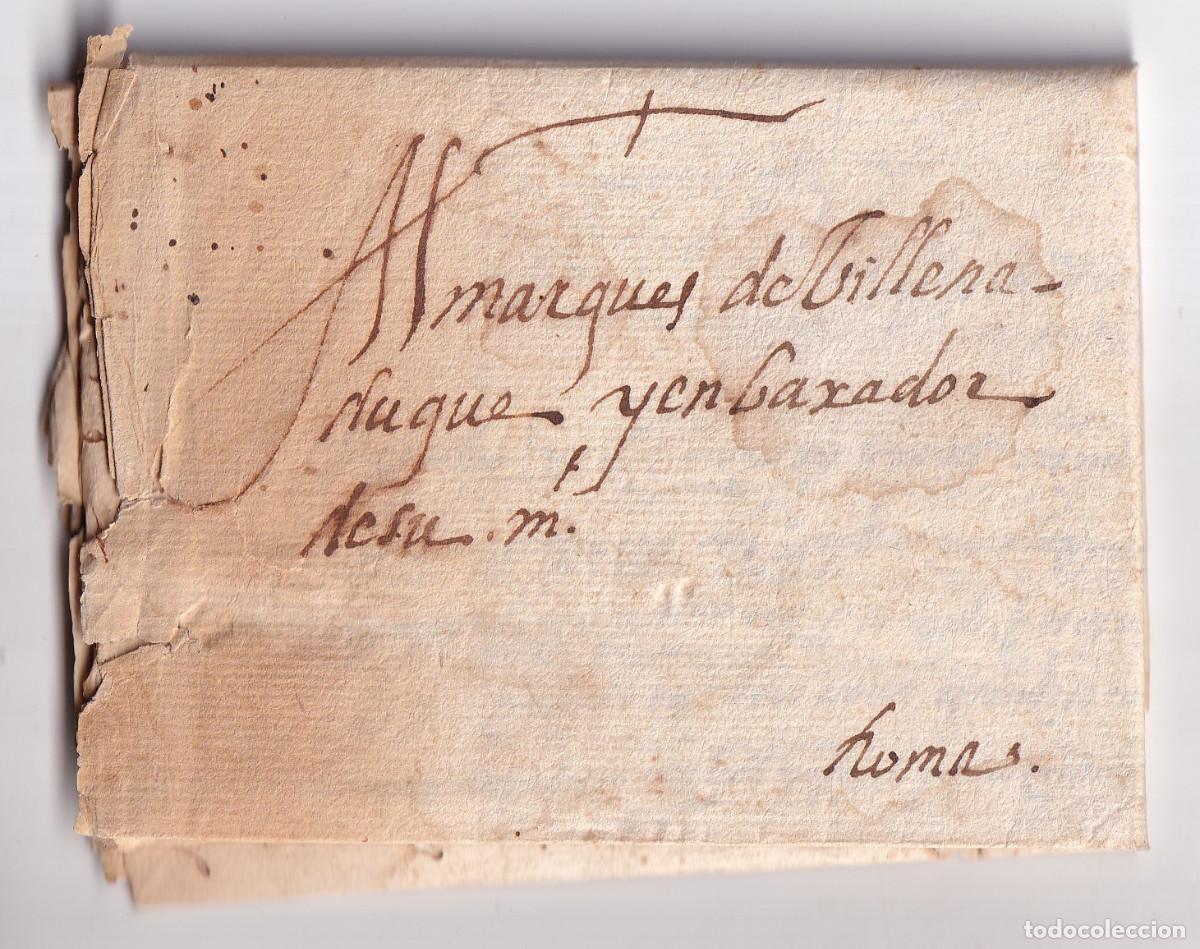 Al marques de Villena
duque y enbaxador
de su .m.ᵗ
Roma.
todocoleccion